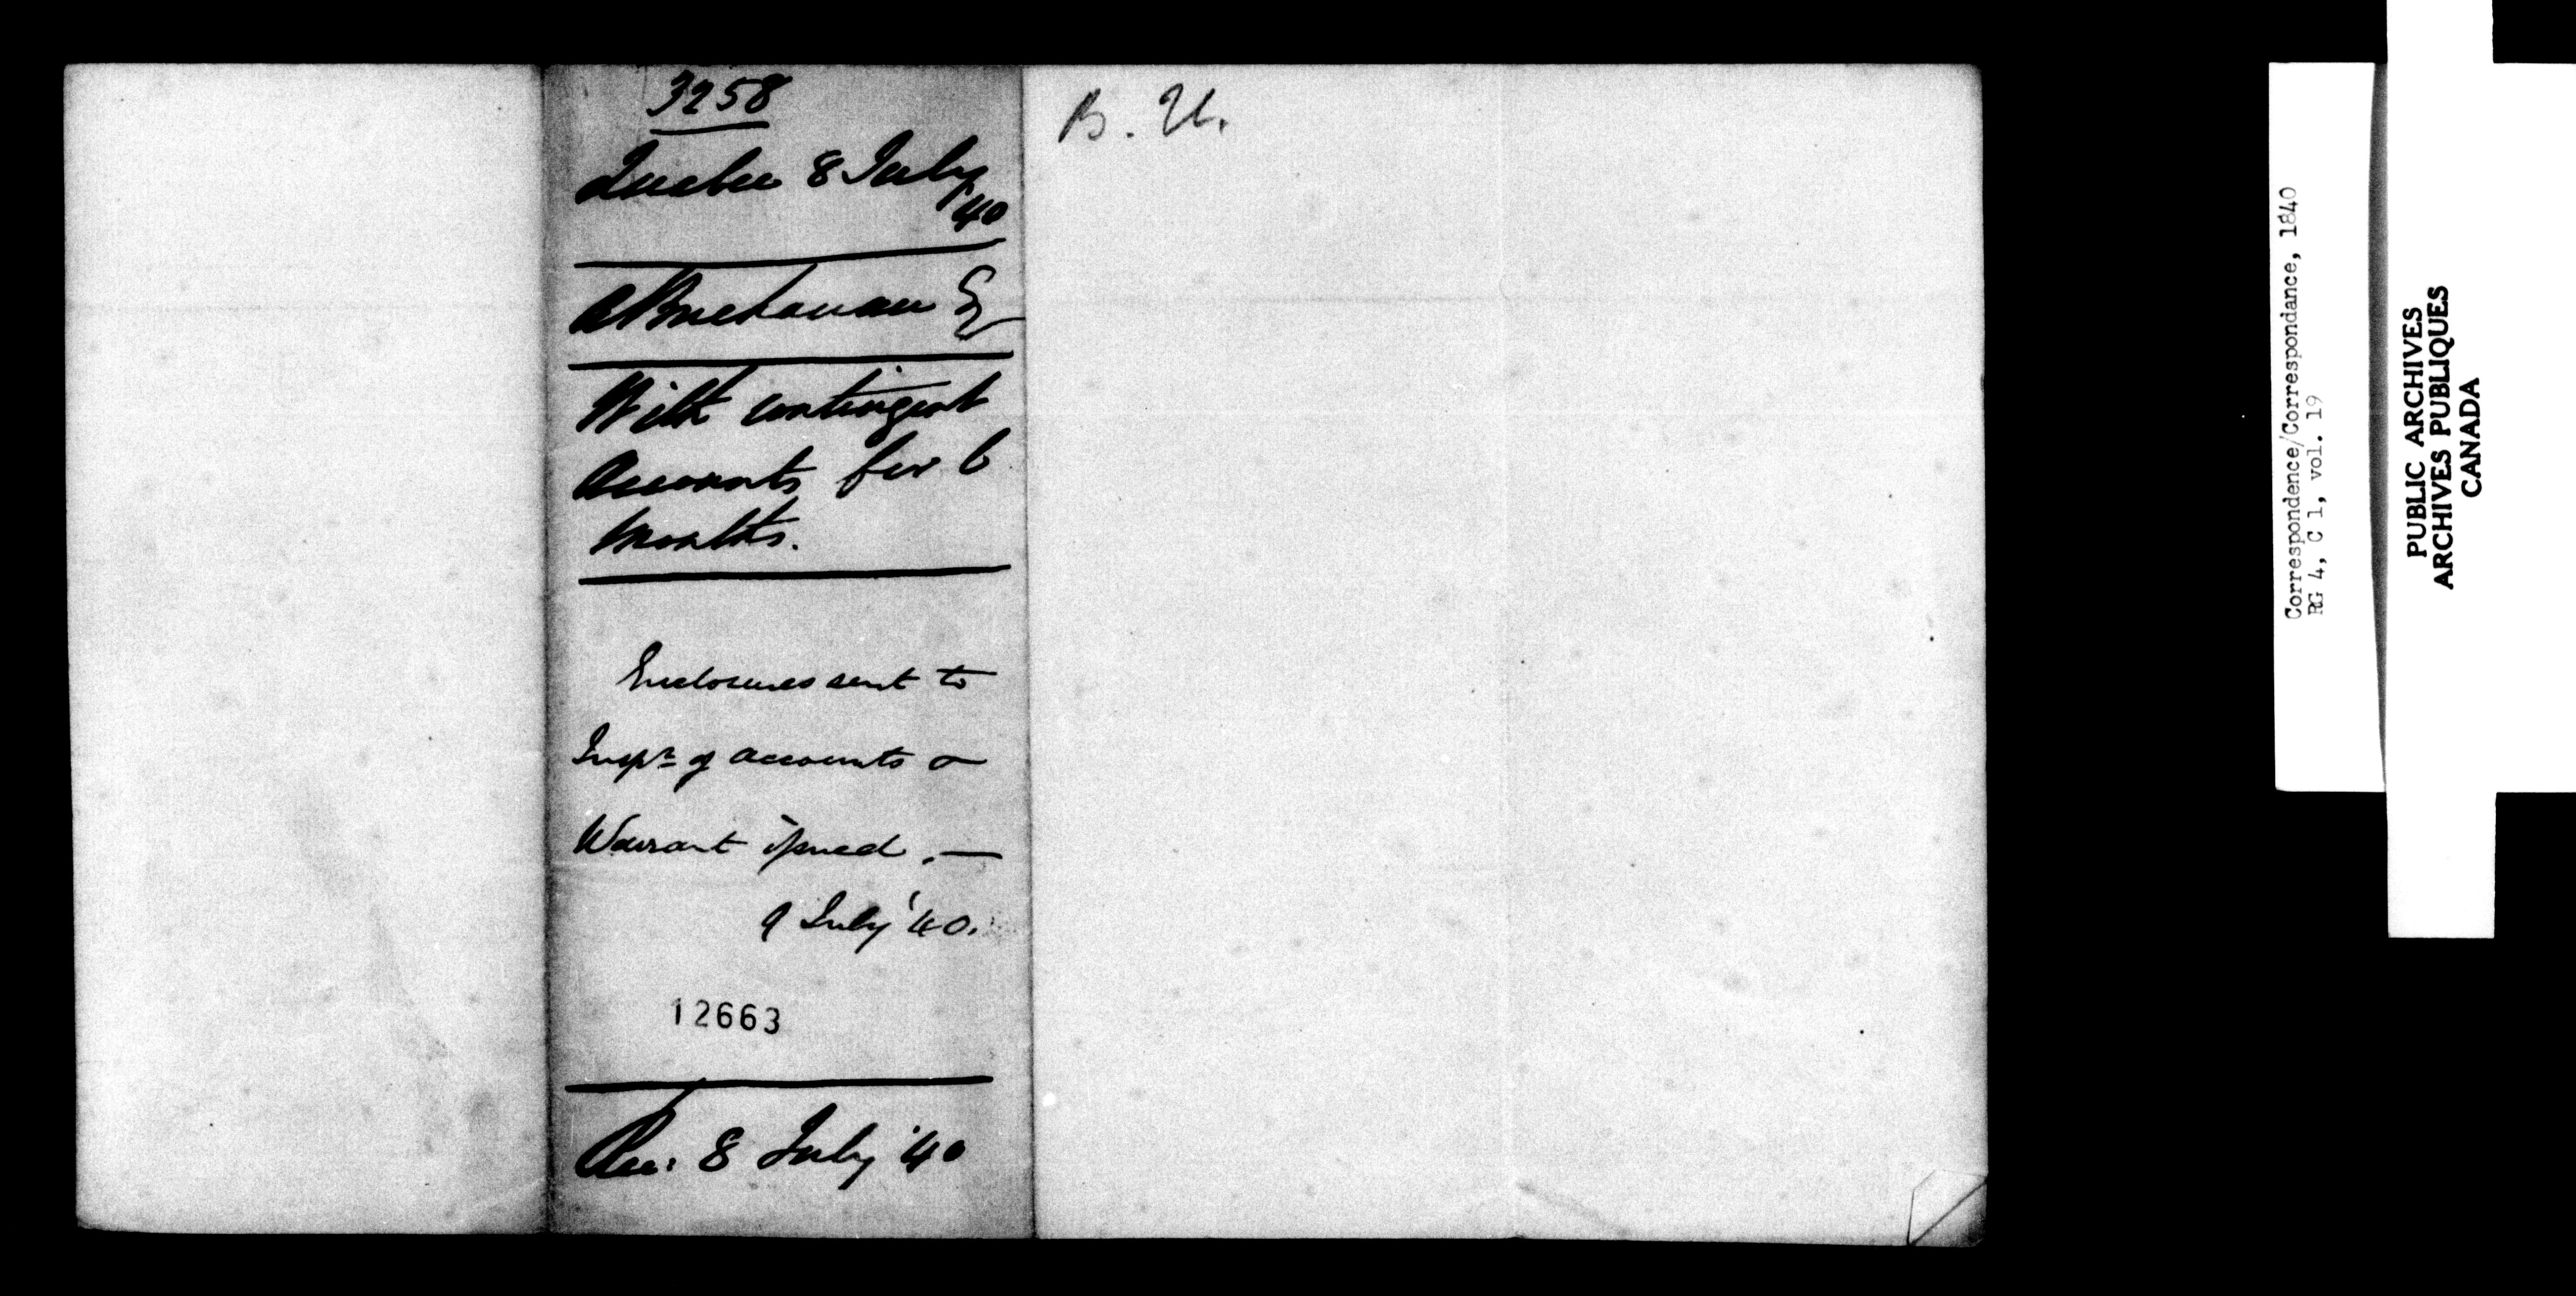 3258
Quebec 8 July
'40
A Buchanan Esq
With contingent
Accounts for 6
Months.
Enclosures sent to
Inspr of accounts &
Warrant issued. —
9 July '40.
12663
Rec: 8 July '40
B. U.
Correspondence/Correspondance, 1840
RG 4, C 1, vol. 19
PUBLIC ARCHIVES
ARCHIVES PUBLIQUES
CANADA